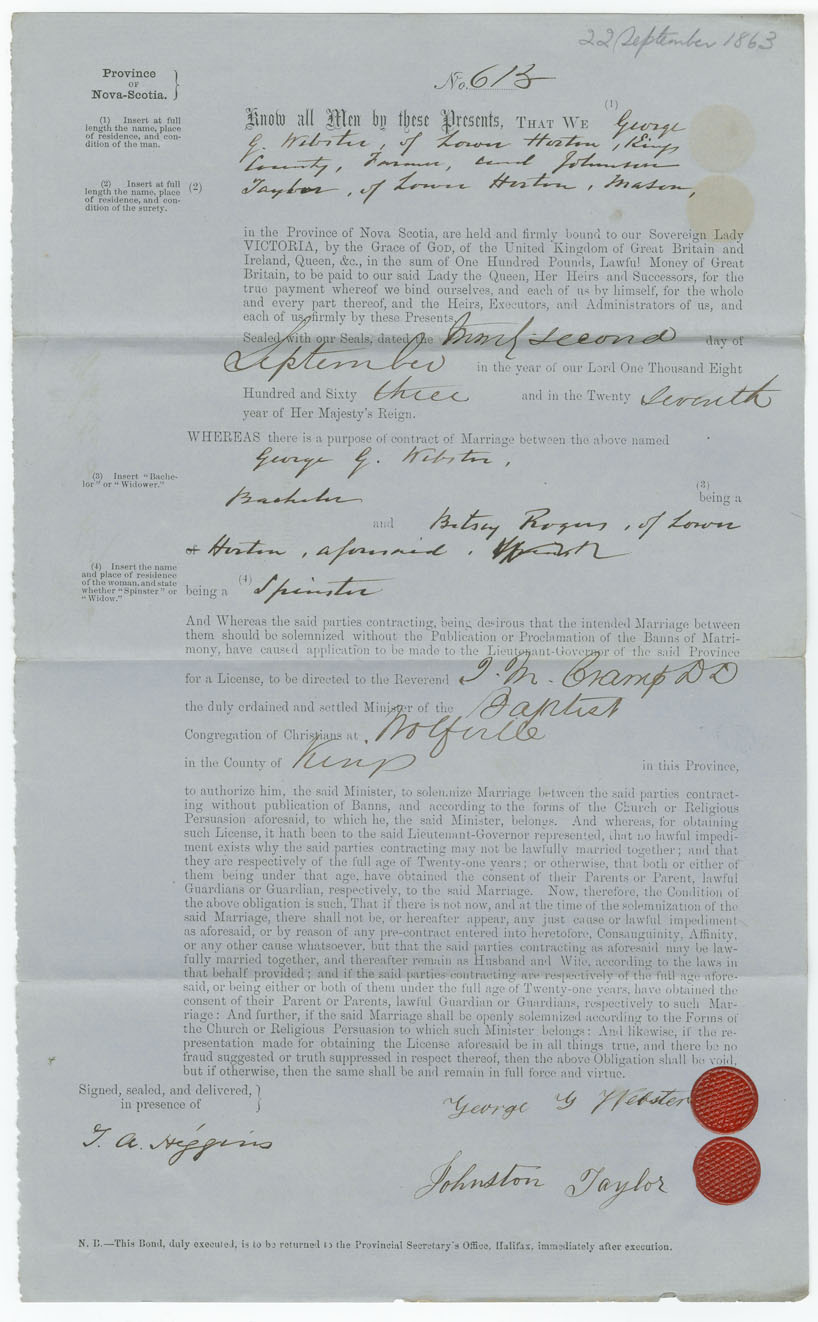 22 September 1863
Province
OF
Nova-Scotia.
No. 613
(1) Insert at full
length the name, place
of residence, and con-
dition of the man.
Know all Men by these Presents, THAT WE (1) George
G. Webster, of Lower Horton, Kings
County, Farmer, and Johnson
(2) Insert at full
length the name, place
of residence, and con-
dition of the surety.
(2) Taylor, of Lower Horton, Mason,
in the Province of Nova Scotia, are held and firmly bound to our Sovereign Lady
VICTORIA, by the Grace of GOD, of the United Kingdom of Great Britain and
Ireland, Queen, &c., in the sum of One Hundred Pounds, Lawful Money of Great
Britain, to be paid to our said Lady the Queen, Her Heirs and Successors, for the
true payment whereof we bind ourselves, and each of us by himself, for the whole
and every part thereof, and the Heirs, Executors, and Administrators of us, and
each of us, firmly by these Presents.
Sealed with our Seals, dated the second day of
September in the year of our Lord One Thousand Eight
Hundred and Sixty three and in the Twenty seventh
year of Her Majesty's Reign.
WHEREAS there is a purpose of contract of Marriage between the above named
George G. Webster,
(3) Insert "Bache-
lor" or "Widower."
(3)
being a
Bachelor
and Betsey Rogers, of Lower
of Horton, aforesaid,
(4) Insert the name
and place of residence
of the woman, and state
whether "Spinster" or
"Widow."
being a (4) Spinster
And Whereas the said parties contracting, being desirous that the intended Marriage between
them should be solemnized without the Publication or Proclamation of the Banns of Matri-
mony, have caused application to be made to the Lieutenant-Governor of the said Province
for a License, to be directed to the Reverend J. M. Cramp DD
the duly ordained and settled Minister of the Baptist
Congregation of Christians at Wolfville
in the County of Kings in this Province,
to authorize him, the said Minister, to solemnize Marriage between the said parties contract-
ing without publication of Banns, and according to the forms of the Church or Religious
Persuasion aforesaid, to which he, the said Minister, belongs. And whereas, for obtaining
such License, it hath been to the said Lieutenant-Governor represented, that no lawful impedi-
ment exists why the said parties contracting may not be lawfully married together; and that
they are respectively of the full age of Twenty-one years; or otherwise, that both or either of
them being under that age, have obtained the consent of their Parents or Parent, lawful
Guardians or Guardian, respectively, to the said Marriage. Now, therefore, the Condition of
the above obligation is such, That if there is not now, and at the time of the solemnization of the
said Marriage, there shall not be, or hereafter appear, any just cause or lawful impediment
as aforesaid, or by reason of any pre-contract entered into heretofore, Consanguinity, Affinity,
or any other cause whatsoever, but that the said parties contracting as aforesaid may be law-
fully married together, and thereafter remain as Husband and Wife, according to the laws in
that behalf provided; and if the said parties contracting are respectively of the full age afore-
said, or being either or both of them under the full age of Twenty-one years, have obtained the
consent of their Parent or Parents, lawful Guardian or Guardians, respectively to such Mar-
riage: And further, if the said Marriage shall be openly solemnized according to the Forms of
the Church or Religious Persuasion to which such Minister belongs: And likewise, if the re-
presentation made for obtaining the License aforesaid be in all things true, and there be no
fraud suggested or truth suppressed in respect thereof, then the above Obligation shall be void,
but if otherwise, then the same shall be and remain in full force and virtue.
Signed, sealed, and delivered,
in presence of
George G Webster
T. A. Higgins
Johnston Taylor
N. B.—This Bond, duly executed, is to be returned to the Provincial Secretary's Office, Halifax, immediately after execution.